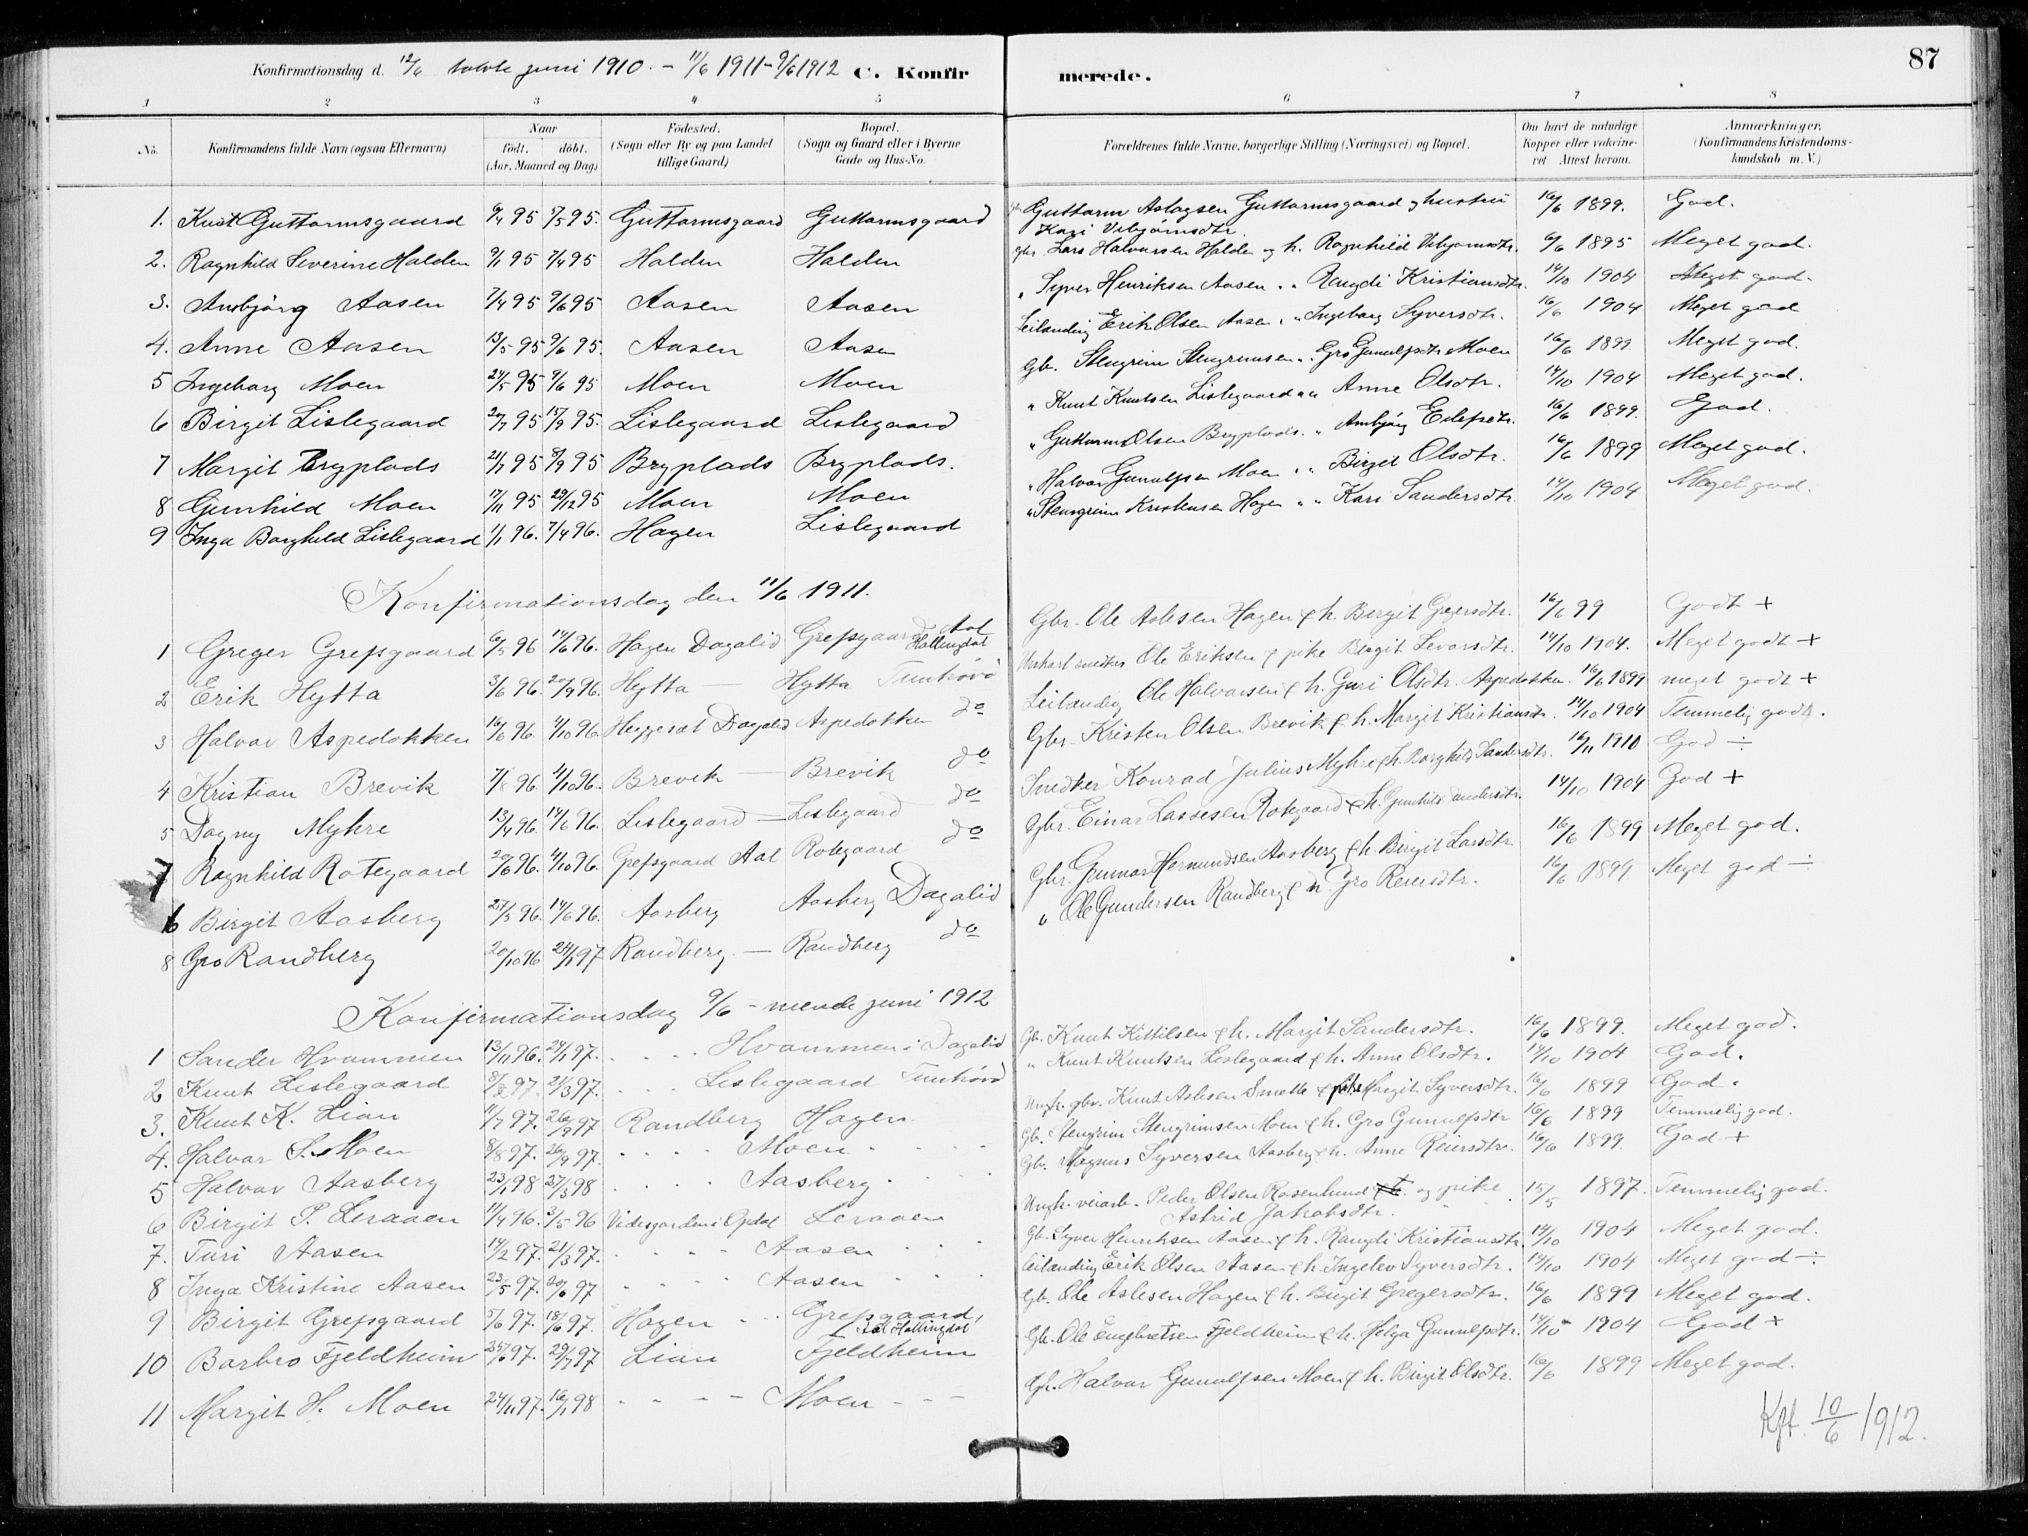 87
Konfirmationsdag d. 12/6 tolvte juni 1910. – 11/6 1911 – 9/6 1912 C. Konfirmerede.
1 2 3 4 5 6 7 8
No. Konfirmandens fulde Navn (ogsaa Efternavn) Naar født. døbt. (Aar, Maaned og Dag) Fødested. (Sogn eller By og paa Landet tillige Gaard) Bopæl. (Sogn og Gaard eller i Byerne Gade og Hus-No. Forældrenes fulde Navne, borgerlige Stilling (Næringsvei) og Bopæl. Om havt de naturlige Kopper eller vakcineret Attest herom. Anmærkninger. (Konfirmandens Kristendomskundskab m. V.)
1. Knut Guttormsgaard 9/4 95 5/5 95. Guttormsgaard Guttormsgaard Guttorm Aslagsen Guttormsgaard og hustru Kari Vebjørnsdtr. 16/6 1899. God.
2. Ragnhild Severine Halden 95 7/4 95 Halden Halden gbr. Lars Halvorsen Halden og h. Ragnhild Vebjørnsdtr. 6/6 1895 Meget god.
3. Ambjørg Aasen 7/4 95 9/6 95 Aasen Aasen " Syver Henriksen Aasen " " Rangdi Kristiansdtr. 14/10 1904 Meget god.
4. Anne Aasen 13/5 95 9/6 95. Aasen Aasen Leilænding Erik Olsen Aasen " " Ingeborg Syversdtr. 16/6 1904 Meget god
5 Ingeborg Moen 24/5 95 9/6 95 Moen Moen Gb. Stengrim Stengrimsen " Gro Gunulfsdtr Moen 16/6 1899 Meget god.
6 Birgit Lislegaard 20/7 95 15/9 95. Lislegaard Lislegaard " Knut Knutsen Lislegaard " " Anne Olsdtr. 14/10 1904 Meget god.
7 Margit Bryplads 21/7 95 8/9 95 Bryplads Bryplads. " Guttorm Olsen Bryplads. " Ambjørg Eilefsdtr. 16/6 1899. God.
8 Gunhild Moen 17/11 95 29/12 95 Moen Moen " Halvor Gunulfsen Moen " " Birgit Olsdtr. 16/6 1899 Meget god.
9 Inga Borghild Lislegaard 1/1 96. 7/4 96. Hagen Lislegaard " Stengrim Kristensen Hagen " " Kari Sandersdtr. 14/10 1904 Meget god.
Konfirmationsdag den 11/6 1911.
1 Greger Grefsgaard 6/5 96 14/6 96. Hagen Dagalid Grefsgaard Aal Hallingdal Gbr. Ole Aslesen Hagen & h. Birgit Gregersdtr. 16/6 99 Godt +
2 Erik Hytta 3/6 96. 20/9 96. Hytta — Hytta Tunhövd Ole Eriksen & pike Birgit Levorsdtr. 14/10 1904. Meget godt +
3 Halvor Aspedokken 16/6 96. 4/10 96. Heggeset Dagalid Aspedokken do Leilænding Ole Halvorsen & h. Guri Olsdtr. Aspedokken. 16/6 1899 meget godt +
4 Kristian Brevik 7/8 96. 4/10 96. Brevik — Brevik do Gbr. Kristen Olsen Brevik & h. Margit Kristiansdtr. 14/10 1904 Temmelig godt.
5 Dagny Myhre 13/4 96. 14/6 96. Lislegaard — Lislegaard do Snedker Konrad Julius Myhre & h. Borghild Sandersdtr. 16/11 1910 God ÷
7 Ragnhild Rotegaard 20/6 96. 4/10 96. Grefsgaard Aal Rotegaard do Gbr. Einar Lassesen Rotegaard & h. Gunhild Sandersdtr. 14/10 1904 God +
6 Birgit Aasberg 27/5 96. 14/6 96. Aasberg Aasberg Dagalid Gbr. Gunnar Hermundsen Aasberg & h. Birgit Larsdtr. 16/6 1899 Meget god.
8 Gro Randberg 20/10 96 24/1 97 Randberg. — Randberg do " Ole Gundersen Randberg & h. Gro Reiersdtr. 16/6 1899 Meget god ÷
Konfirmationsdag 9/6 – niende juni 1912
1 Sander Hvammen 13/11 96. 24/1 97. Hvammen i Dagalid Gb. Knut Kittilsen & h. Margit Sandersdtr. 16/6 1899. Meget god.
2 Knut Lislegaard 97. 21/3 97. Lislegaard Tunhövd " Knut Knutsen Lislegaard & h. Anne Olsdtr. 14/10 1904 God.
3. Knut K. Lian 11/7 97. 26/9 97 Randberg Hagen Ungk. gbr. Knut Aslesen Smette & pike Margit Syversdtr. 16/6 1899 God.
4. Halvor S. Moen 8/8 97. 26/9 97. Moen Gb. Stengrim Stengrimsen Moen & h. Gro Gunulfsdtr 16/6 1899 Temmelig god.
5 Halvor Aasberg 23/1 98 27/3 98 Aasberg Gb. Magnus Syversen Aasberg & h. Anne Reiersdtr. 16/6 1899. God +
6 Birgit P. Leraaen 11/4 96. 3/5 96 Videsgarden i Opdal Leraaen Ungk. veiarb. Peder Olsen Rosenlund og pike Astrid Jakobsdtr. 15/5 1897. Temmelig god.
7. Turi Aasen 14/2 97. 21/3 97. Aasen Gb. Syver Henriksen Aasen & h. Rangdi Kristiansdtr. 14/10 1904 Meget god.
8 Inga Kristine Aasen 23/5 97. 20/6 97 Aasen Leilænding Erik Olsen Aasen & h. Ingelev Syversdtr. 14/10 1904 Meget god ÷
9 Birgit Grefsgaard 5/6 97. 18/6 97. Hagen Grefsgaard, Aal Hallingdal Gb. Ole Aslesen Hagen & h. Birgit Gregersdtr. 16/6 1899 Meget god.
10 Barbro Fjeldheim 97. 29/7 97 Lian Fjeldheim Gb. Ole Engebretsen Fjeldheim & h. Helga Gunulfsdtr. 14/10 1904 God +
11 Margit H. Moen 24/11 97. 16/1 98 Moen Gb. Halvor Gunulfsen Moen & h. Birgit Olsdtr. 16/6 1899 Meget god.
Kft. 10/6 1912.